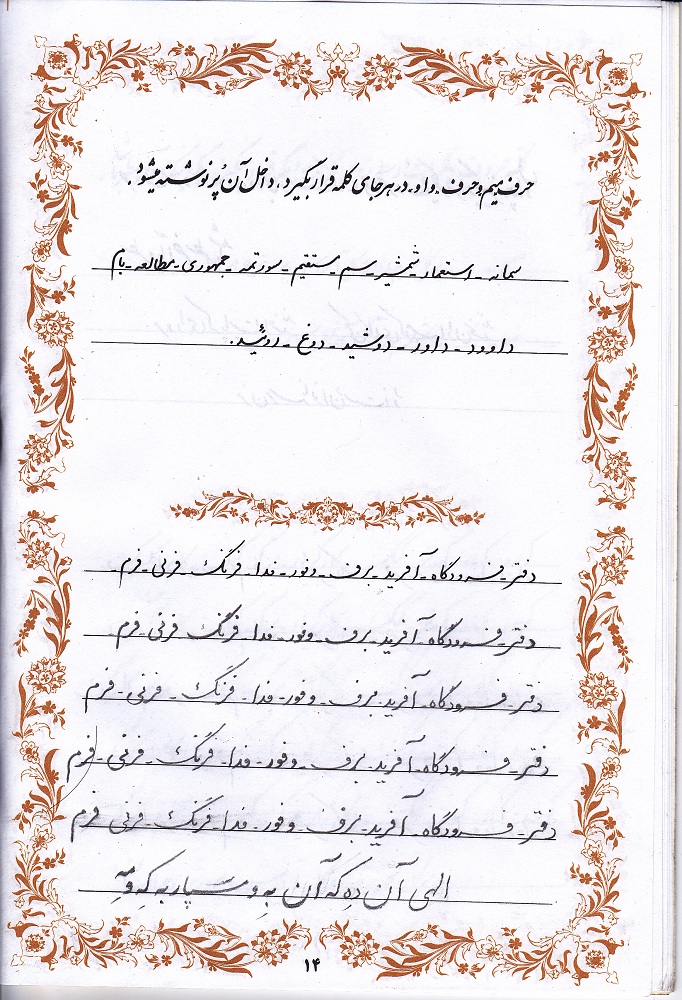 حرف میم و حرف واو در هر جای کلمه قرار بگیرد، داخل آن پُر نوشته میشود.
سمانه - استعمار - شمشیر - سم - مستقیم - سورتمه - جمهوری - مطالعه - بام
داوود - داور - دوشید - دوغ - روئید.
دفتر - فرودگاه - آفرید - برف - وفور - فدا - فرنگ - فرنی - فرم
دفتر - فرودگاه - آفرید - برف - وفور - فدا - فرنگ - فرنی - فرم
دفتر - فرودگاه - آفرید - برف - وفور - فدا - فرنگ - فرنی - فرم
دفتر - فرودگاه - آفرید - برف - وفور - فدا - فرنگ - فرنی - فرم
دفتر - فرودگاه - آفرید - برف - وفور - فدا - فرنگ - فرنی - فرم
الهی آن ده که آن به و مسپار به که و مه
۱۴